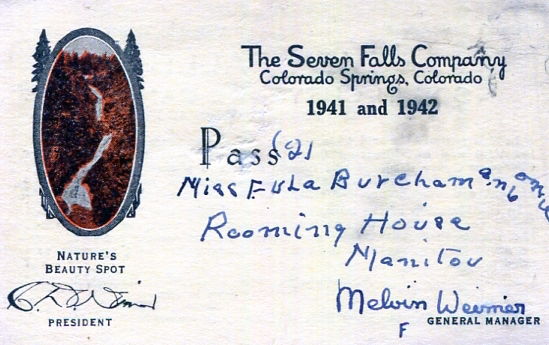 The Seven Falls Company
Colorado Springs, Colorado
1941 and 1942
Pass (2)
Miss Eula Burcham
Rooming House
Manitou
NATURE'S
BEAUTY SPOT
PRESIDENT
Melvin Weimer
F GENERAL MANAGER